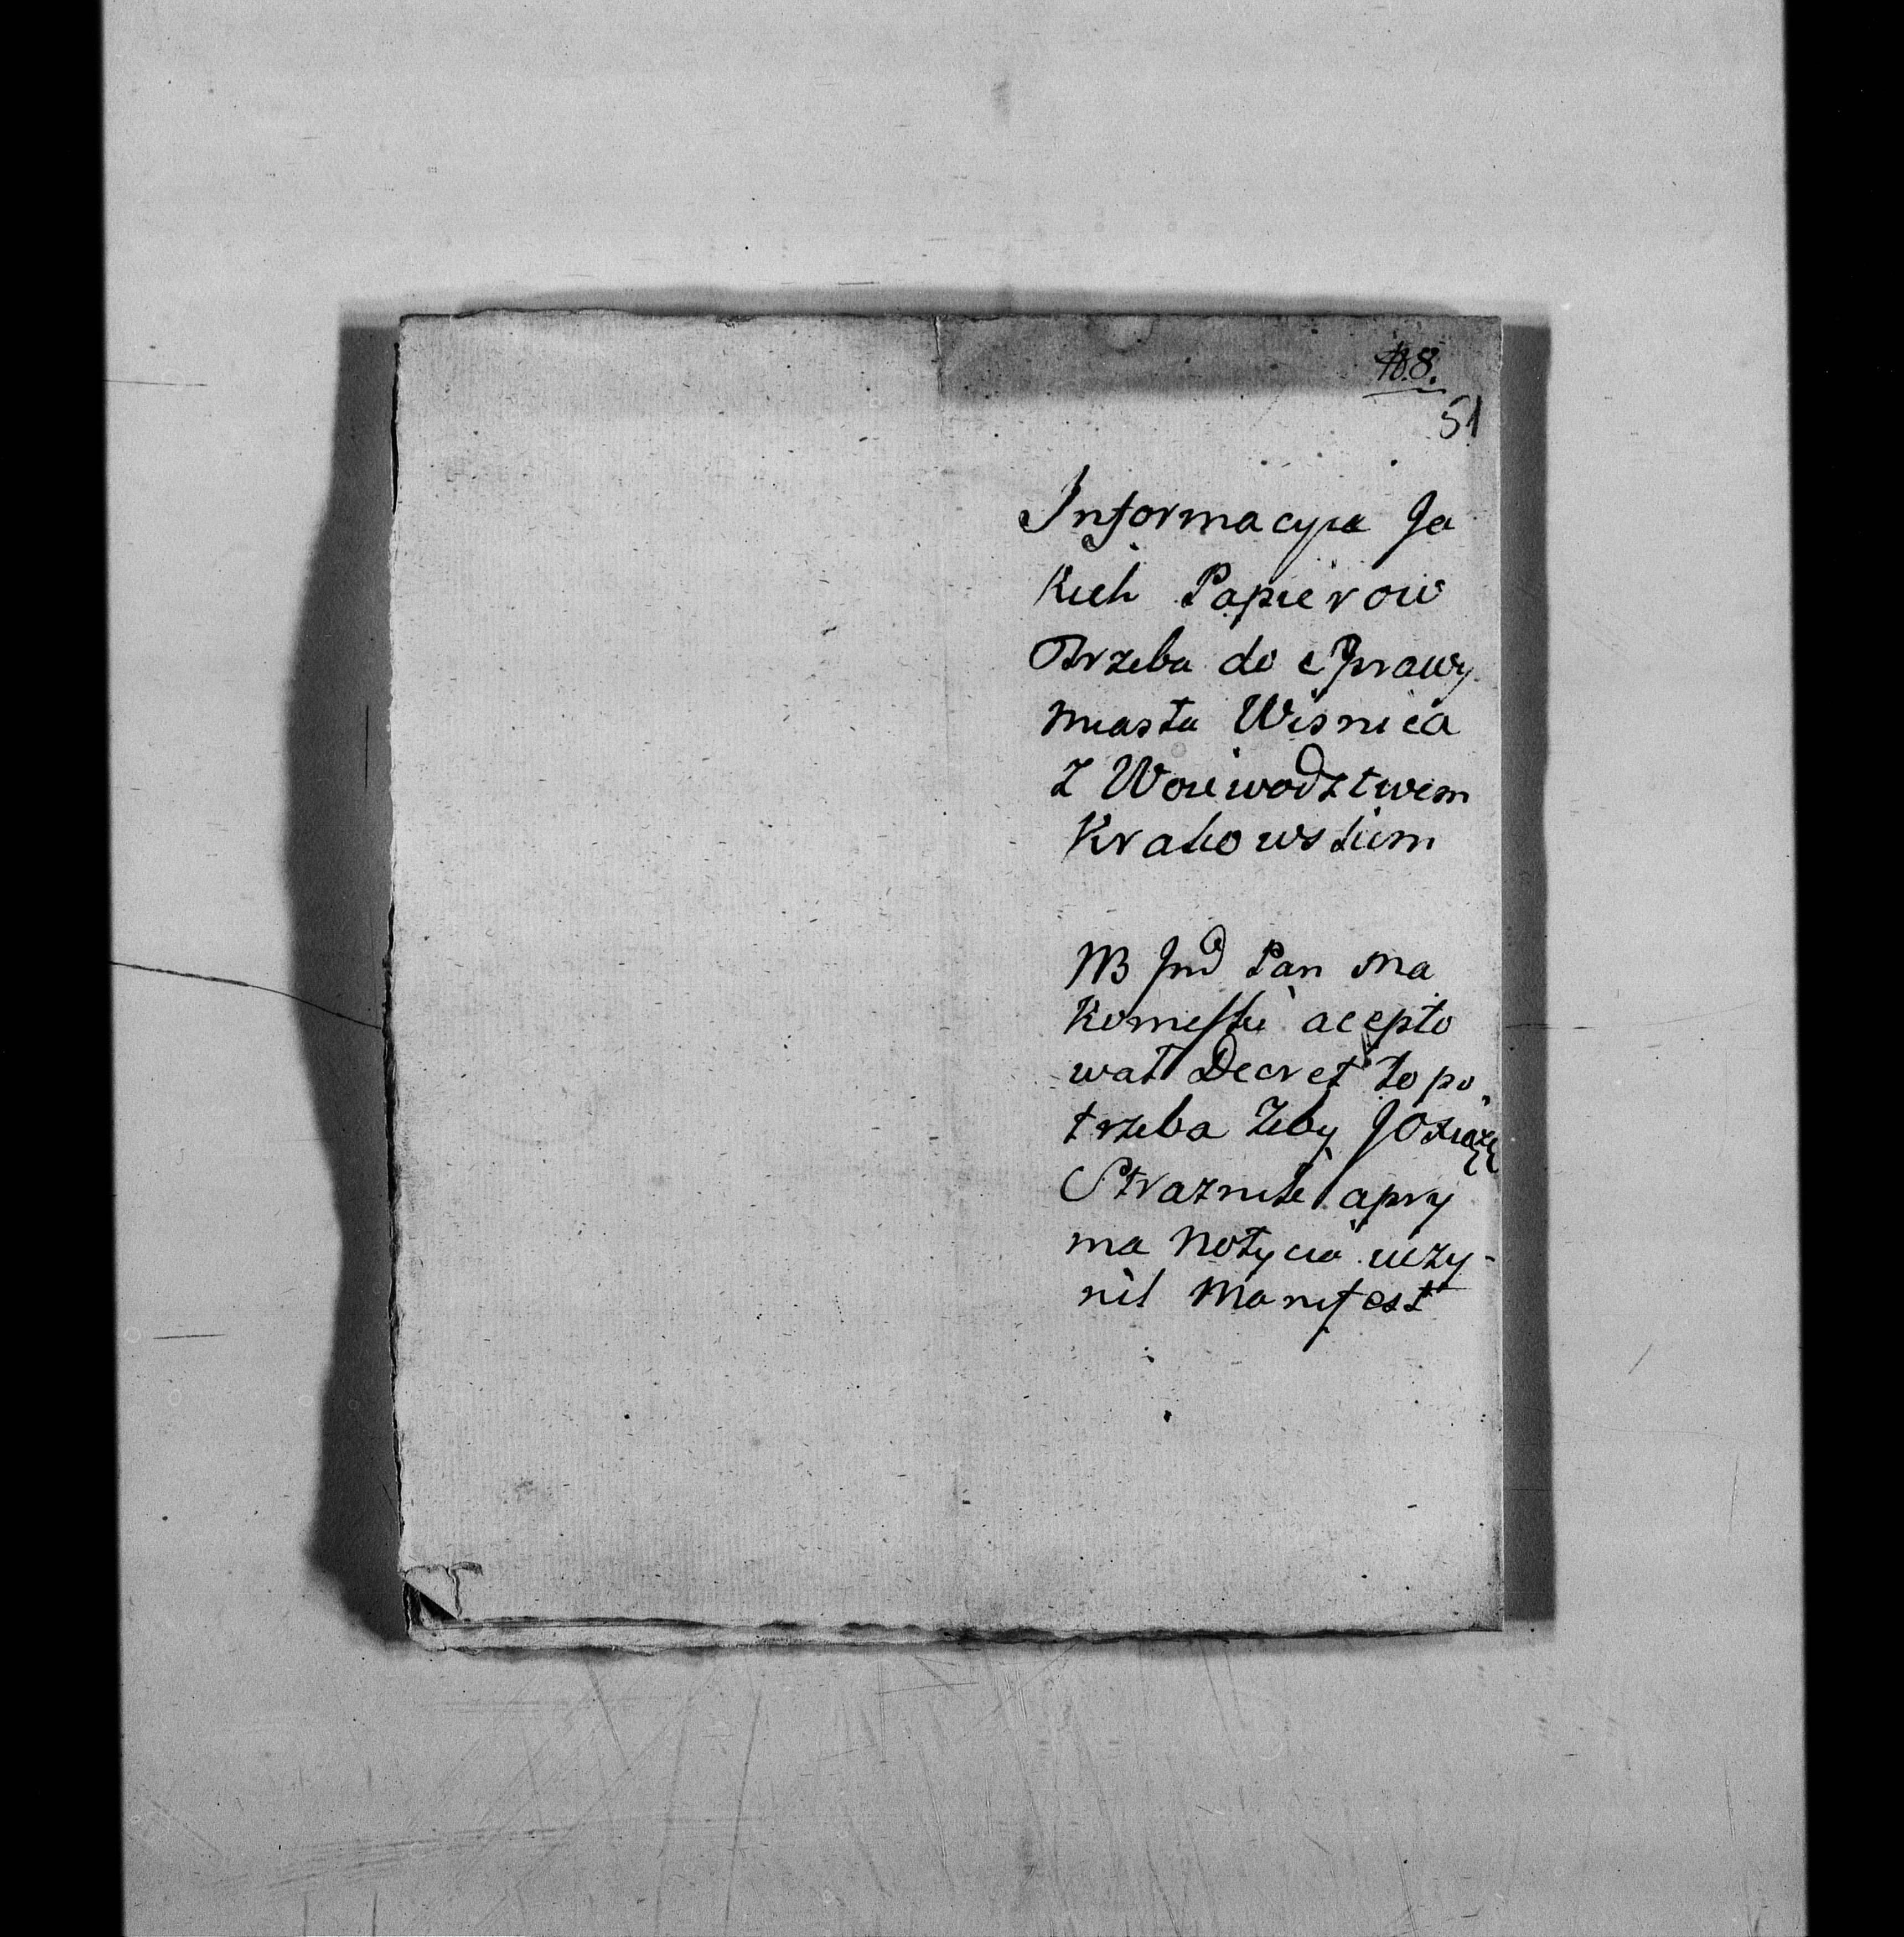 8.
51
Informacyia Ja
kich Papierow
Trzeba do Sprawy
miasta Wisnica
Z Woiewodztwem
Krakowskim
NB Jmć Pan Ma
komeski acepto
wał Decret to po
trzeba żeby JOXiążę
Straznik a pry
ma Notycia uczy-
nil Manifest